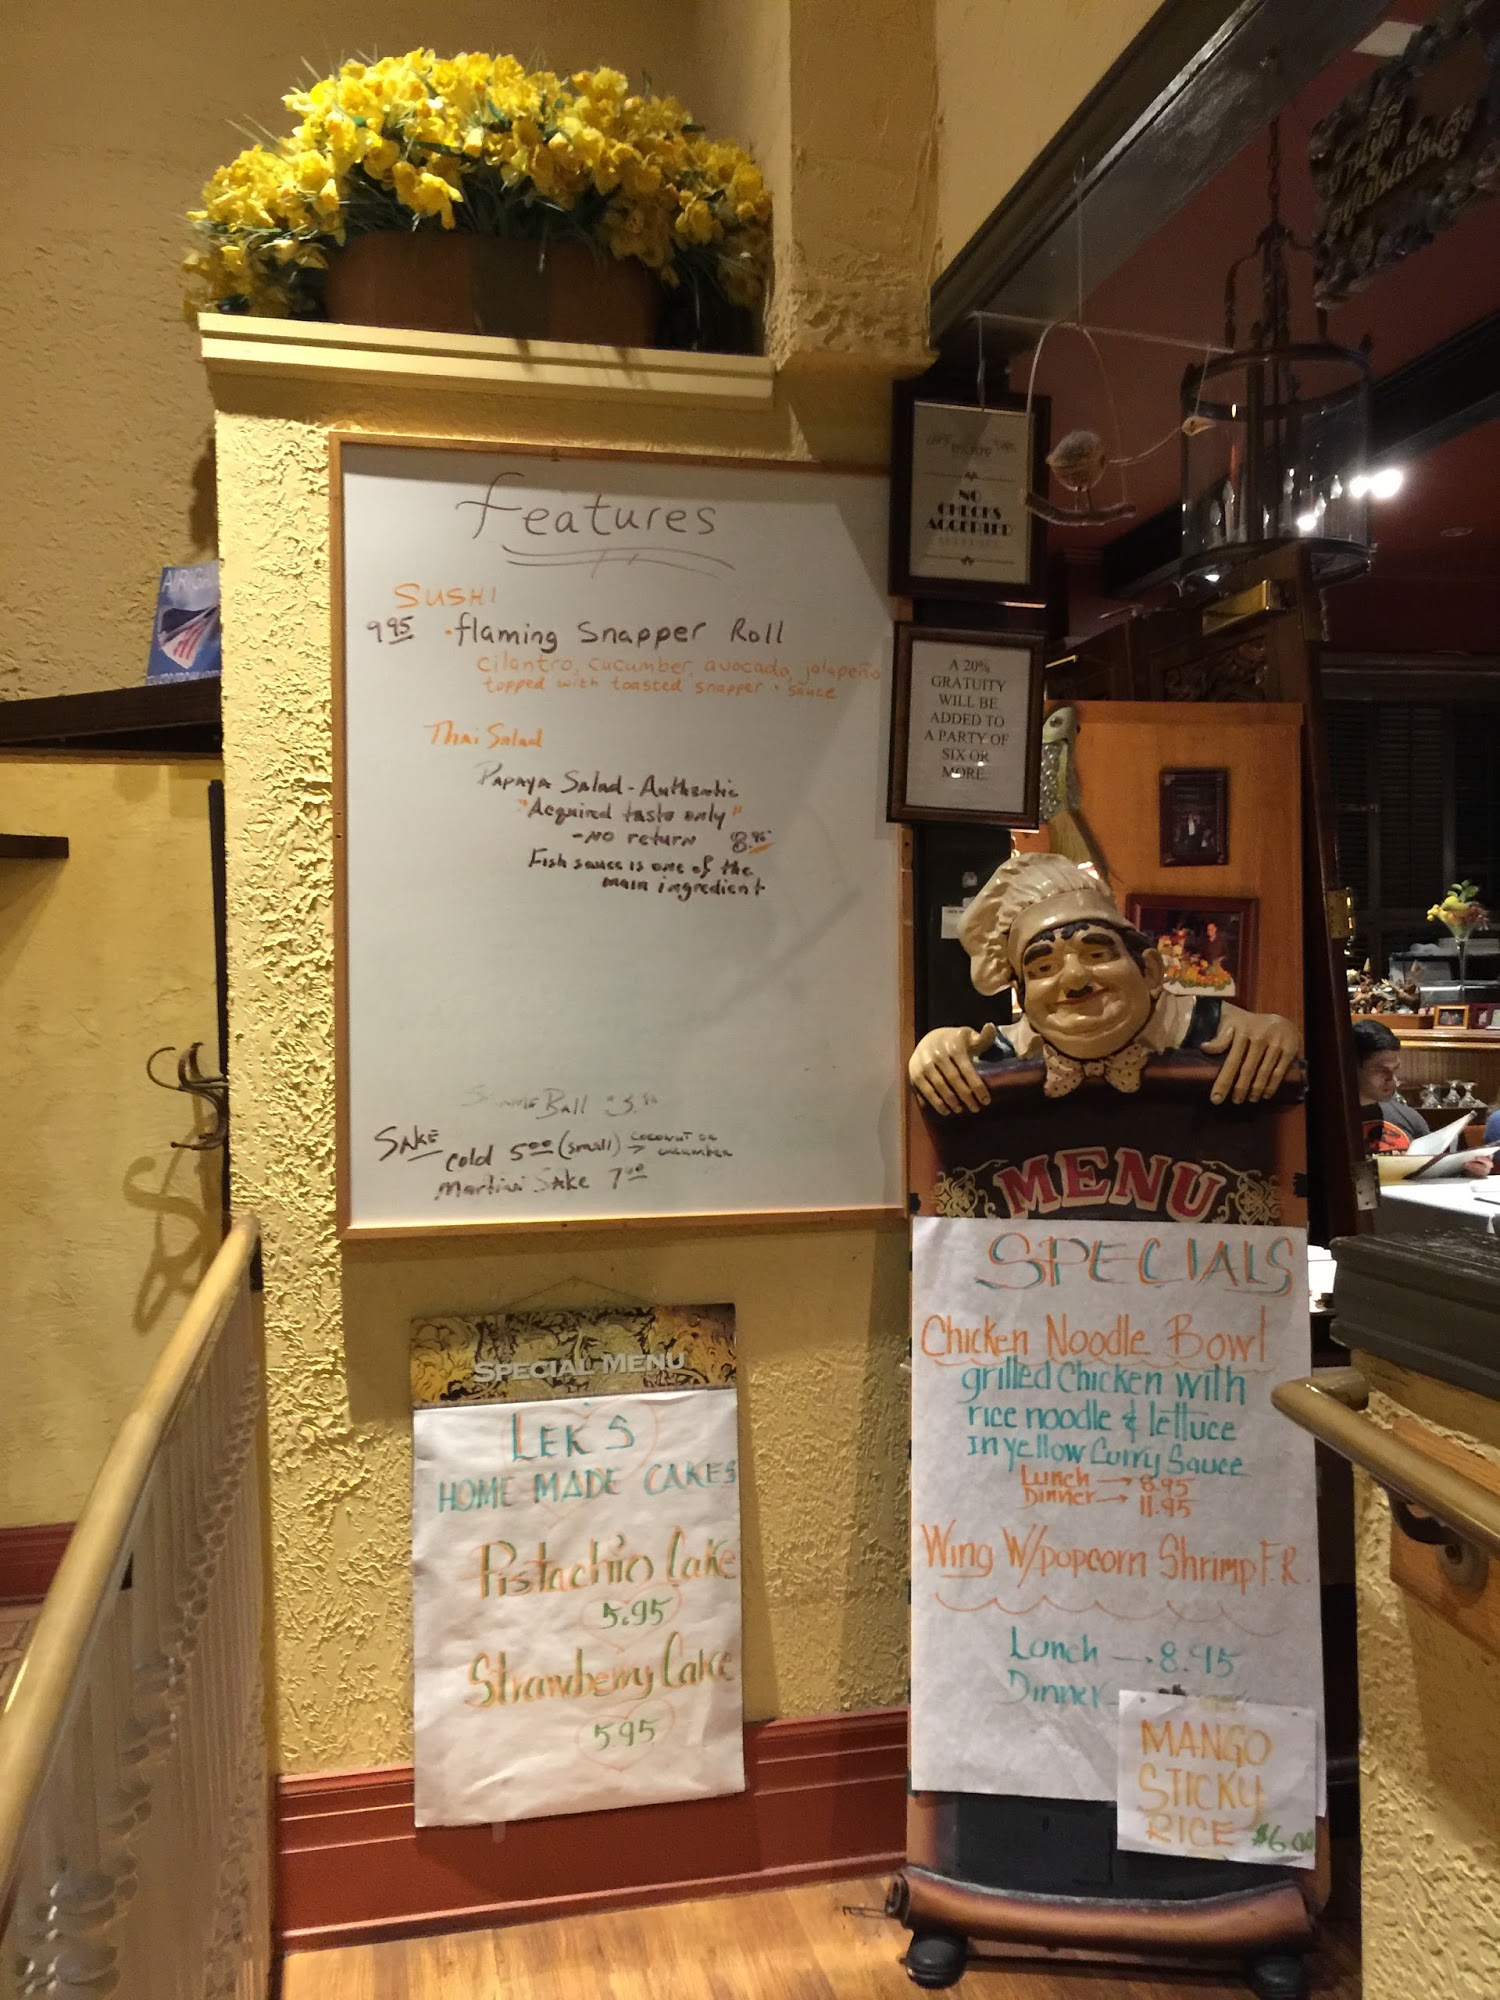 Features
SUSHI
9.95 · flaming Snapper Roll
cilantro, cucumber, avocado, jalapeño
topped with toasted snapper + sauce
Thai Salad
Papaya Salad - Authentic
"Acquired taste only"
- NO return 8.95
Fish sauce is one of the
main ingredient
Ball
SAKE
cold 5.00 (small) → coconut or
cucumber
Martini Sake 7.00
NO
CHECKS
ACCEPTED
A 20%
GRATUITY
WILL BE
ADDED TO
A PARTY OF
SIX OR
MORE.
SPECIAL MENU
LEK'S
HOME MADE CAKES
Pistachio Cake
5.95
Strawberry Cake
595
MENU
SPECIALS
Chicken Noodle Bowl
grilled Chicken with
rice noodle & lettuce
in yellow Curry Sauce
Lunch → 8.95
Dinner → 11.95
Wing W/popcorn Shrimp F.R.
Lunch → 8.95
Dinner
MANGO
STICKY
RICE $6.00